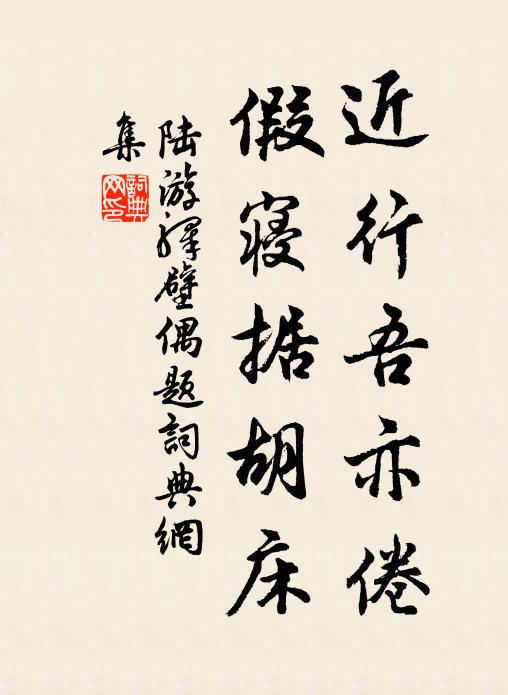 近行吾亦倦
假寝据胡床
陆游驿壁偶题詞典網
集
詞典网印